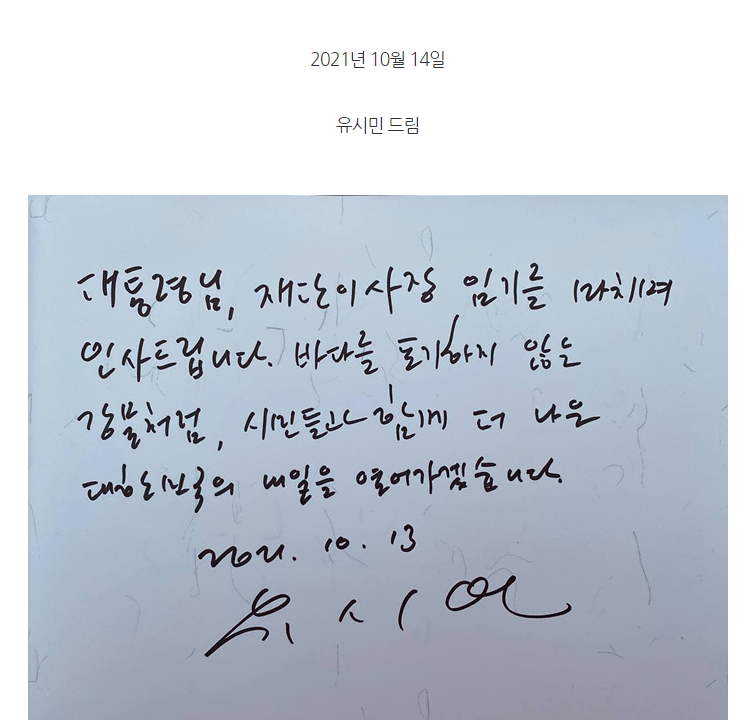 2021년 10월 14일
유시민 드림
대통령님, 재단이사장 임기를 마치며
인사드립니다. 바다를 포기하지 않는
강물처럼, 시민들과 함께 더 나은
대한민국의 내일을 열어가겠습니다.
2021. 10. 13
유시민